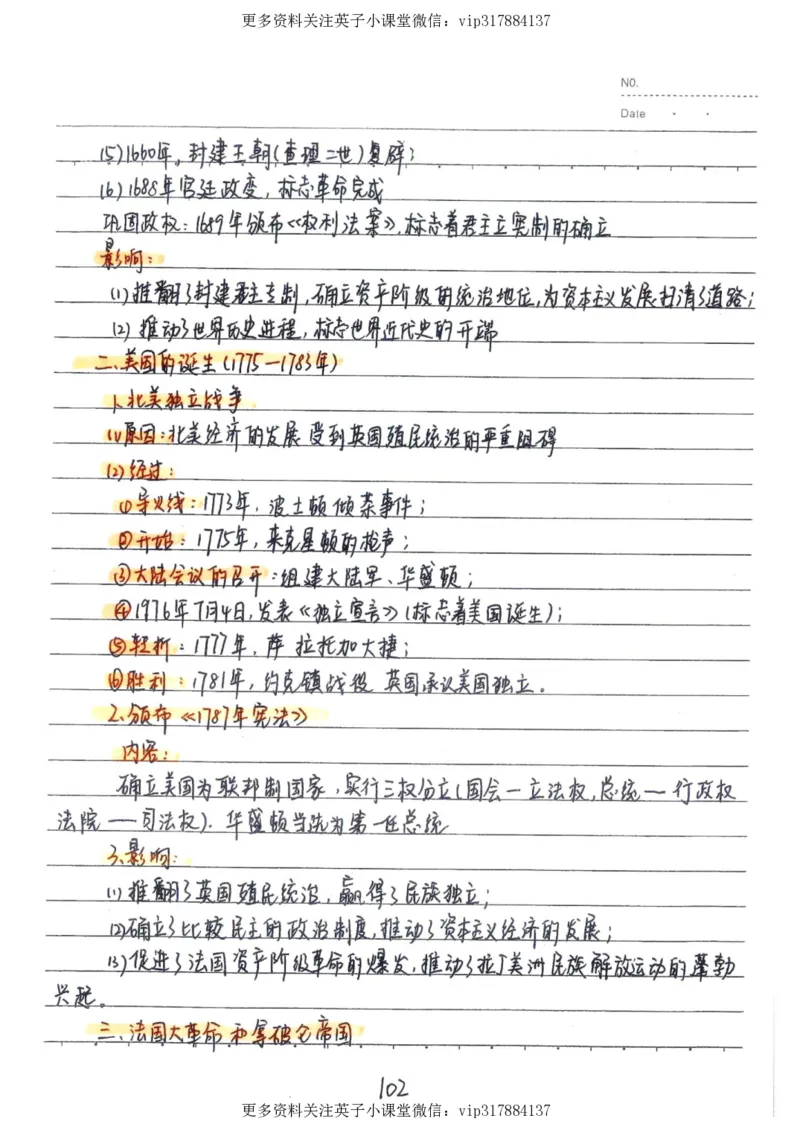 更多资料关注英子小课堂微信：vip317884137
NO.
Date
(5)1660年，封建王朝(查理二世)复辟；
(6)1688年宫廷政变，标志革命完成
巩固政权：1689年颁布《权利法案》，标志着君主立宪制的确立
影响：
(1)推翻了封建君主专制，确立资产阶级的统治地位，为资本主义发展扫清了道路；
(2)推动了世界历史进程，标志世界近代史的开端
二、美国的诞生(1775—1783年)
1、北美独立战争
(1)原因：北美经济的发展受到英国殖民统治的严重阻碍
(2)经过：
①导火线：1773年，波士顿倾茶事件；
②开始：1775年，来克星顿的枪声；
③大陆会议的召开：组建大陆军、华盛顿；
④1976年7月4日，发表《独立宣言》(标志着美国诞生)；
⑤转折：1777年，萨拉托加大捷；
⑥胜利：1781年，约克镇战役 英国承认美国独立。
2、颁布《1787年宪法》
内容：
确立美国为联邦制国家，实行三权分立(国会—立法权，总统—行政权
法院—司法权)．华盛顿当选为第一任总统
3、影响：
(1)推翻了英国殖民统治，赢得了民族独立；
(2)确立了比较民主的政治制度，推动了资本主义经济的发展；
(3)促进了法国资产阶级革命的爆发，推动了拉丁美洲民族解放运动的蓬勃
兴起。
三、法国大革命和拿破仑帝国
102
更多资料关注英子小课堂微信：vip317884137